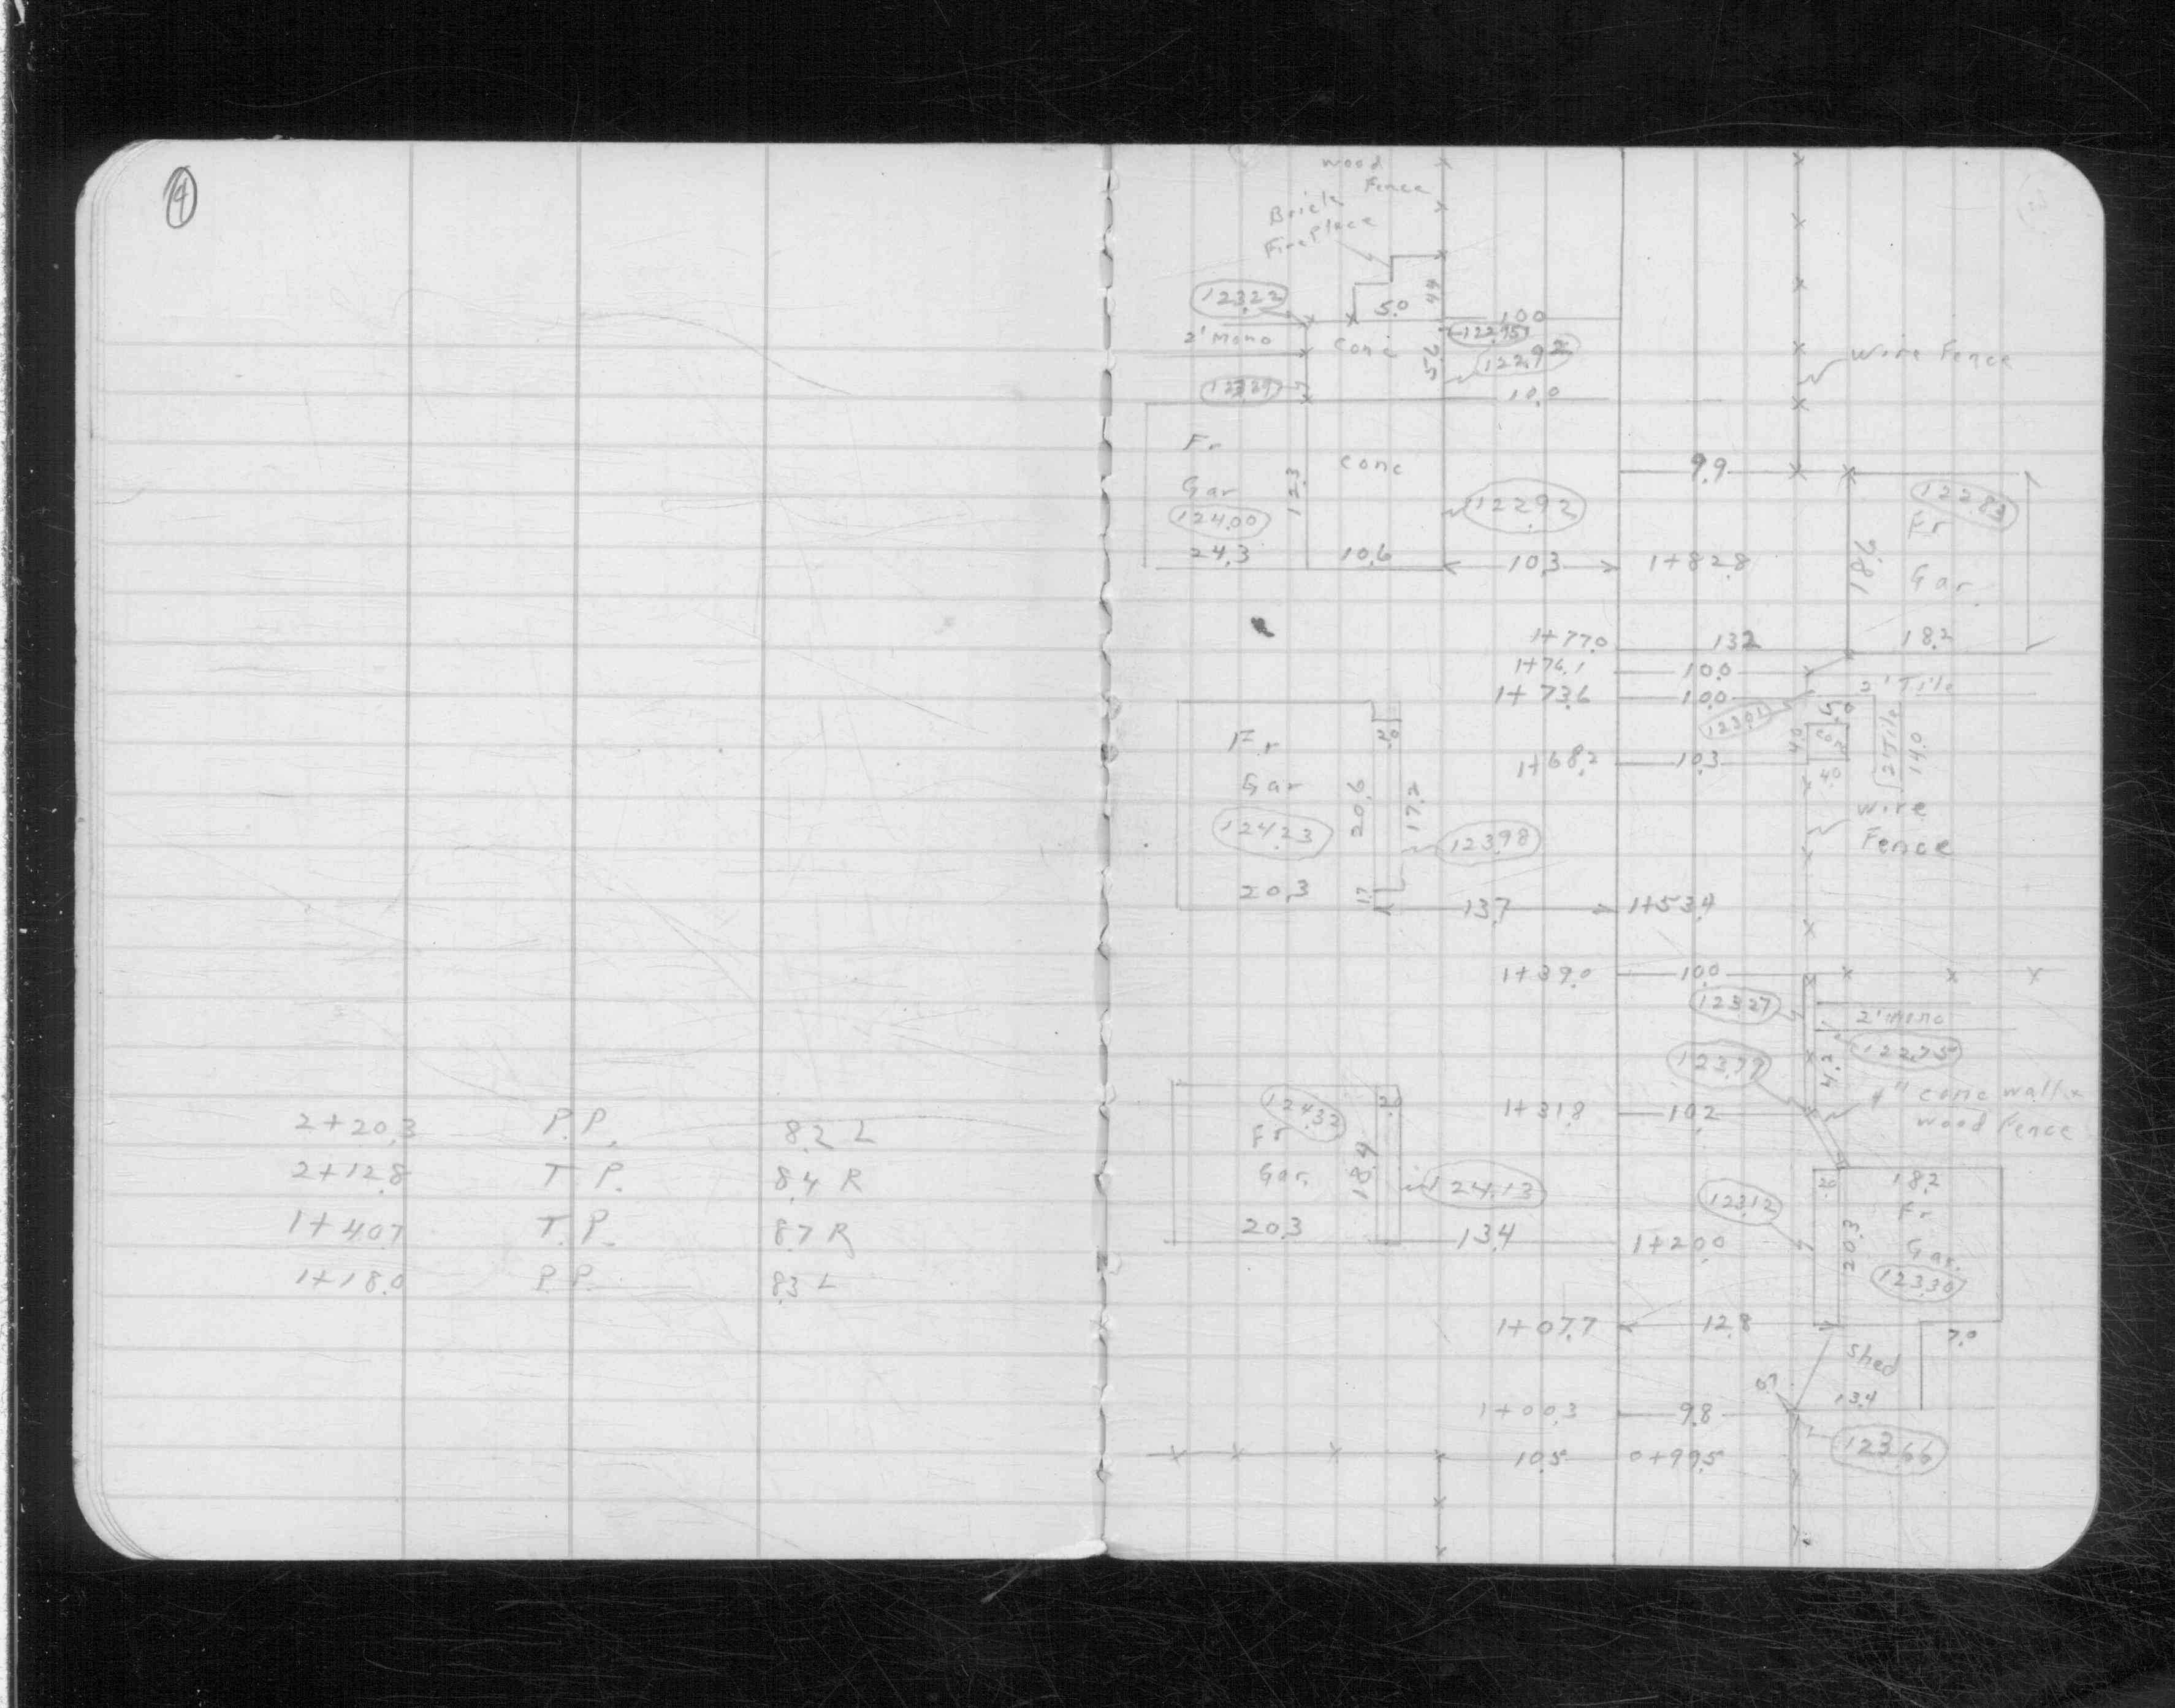 4
2+20.3 P.P. 8.2 L
2+12.8 T.P. 8.4 R
1+40.7 T.P. 8.7 R
1+18.0 P.P. 8.3 L
wood
Fence
Brick
FirePlace
123.22
5.0
4.4
10.0
2' mono
conc
5.6
122.92
wire Fence
123.29
10.0
Fr
conc
9.9
Gar
12.3
122.92
122.83
124.00
Fr
24.3
10.6
10.3
1+82.8
18.6
Gar.
1+77.0
13.2
18.2
1+76.1
10.0
2' Tile
1+73.6
10.0
123.01
5.0
Fr
2.0
4.0
conc
2' Tile
14.0
1+68.2
10.3
4.0
Gar
20.6
17.2
wire
Fence
124.23
123.98
20.3
1.7
13.7
1+53.4
1+39.0
10.0
123.27
2' mono
122.75
123.77
4.2
4" conc wall &
wood Fence
124.32
2.0
1+31.8
10.2
Fr
Gar.
18.4
124.13
2.0
18.2
Fr
123.12
20.3
13.4
1+20.0
20.3
Gar.
123.30
1+07.7
12.8
7.0
Shed
13.4
1+00.3
9.8
123.66
10.5
0+99.5